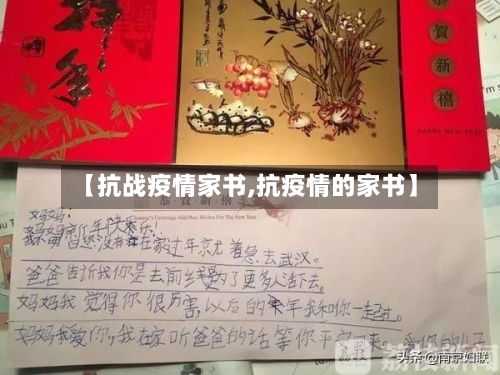 恭賀新禧
HAPPY NEW YEAR
【抗战疫情家书,抗疫情的家书】
恭賀新禧
And Best Wishes For The New Year
妈妈:
妈妈新年快乐!
你还没有在家过年就着急去武汉。
爸爸告诉我你是去前线为了更多人活下去。
妈妈我觉得你很厉害,以后的年我和你一起过。
妈妈我爱你,我在家听爸爸的话等你平安回来。爱你的儿子
荔枝新闻
头条 @南京妇联